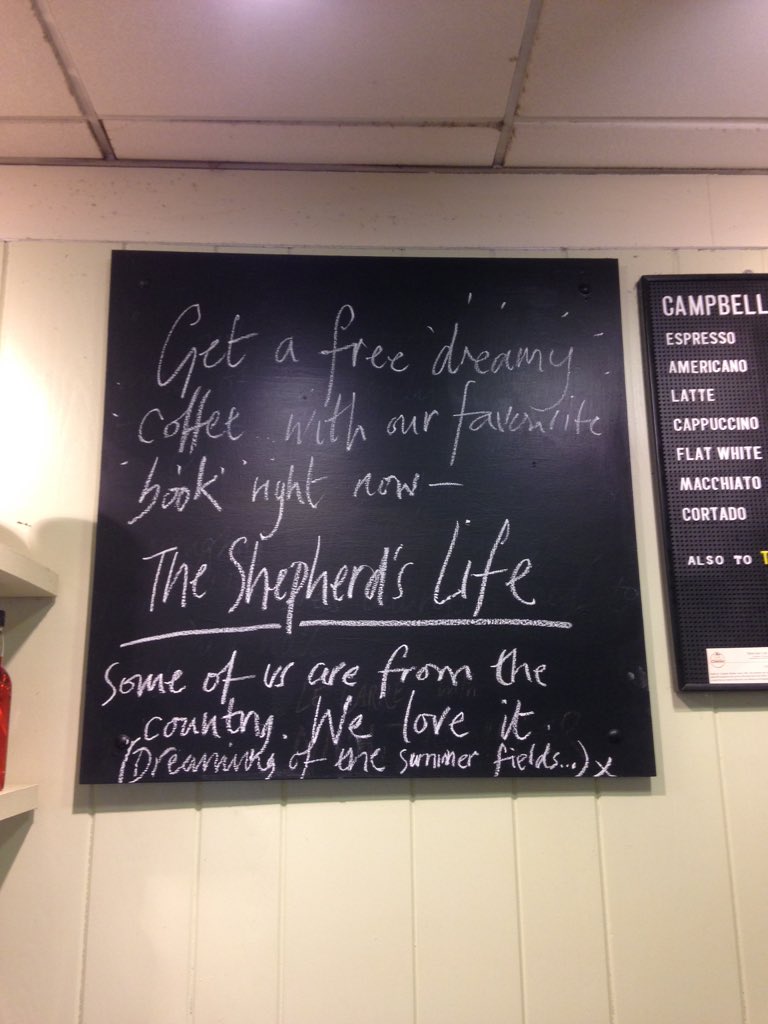 Get a free 'dreamy'
coffee with our favourite
'book' right now –
The Shepherd's Life
Some of us are from the
country. We love it.
(Dreaming of the summer fields...) x
CAMPBELL
ESPRESSO
AMERICANO
LATTE
CAPPUCCINO
FLAT WHITE
MACCHIATO
CORTADO
ALSO TO T